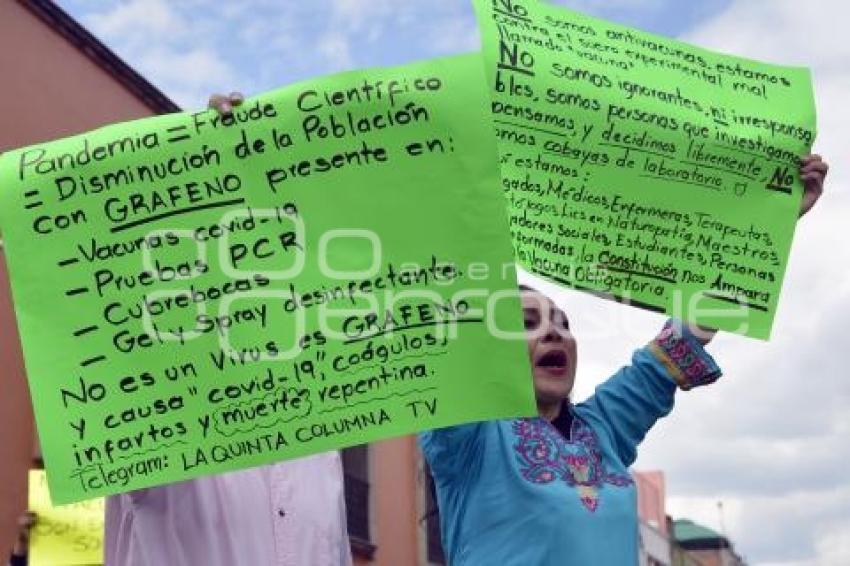 Pandemia = Fraude Científico
= Disminución de la Población
con GRAFENO presente en:
- Vacunas covid-19
- Pruebas PCR
- Cubrebocas
- Gel y Spray desinfectante.
No es un Virus es GRAFENO
y causa "covid-19", coágulos,
infartos y muerte repentina.
Telegram: LA QUINTA COLUMNA TV
No somos antivacunas, estamos
contra el suero experimental mal
llamado "vacuna"
No somos ignorantes, ni irresponsa-
bles, somos personas que investigamos
pensamos y decidimos libremente, No
somos cobayas de laboratorio.
quí estamos:
gados, Médicos, Enfermeras, Terapeutas
tólogos, Lics en Naturopatía, Maestros
adores Sociales, Estudiantes, Personas
formadas, la Constitución nos Ampara
a Vacuna Obligatoria.
agencia
enfoque